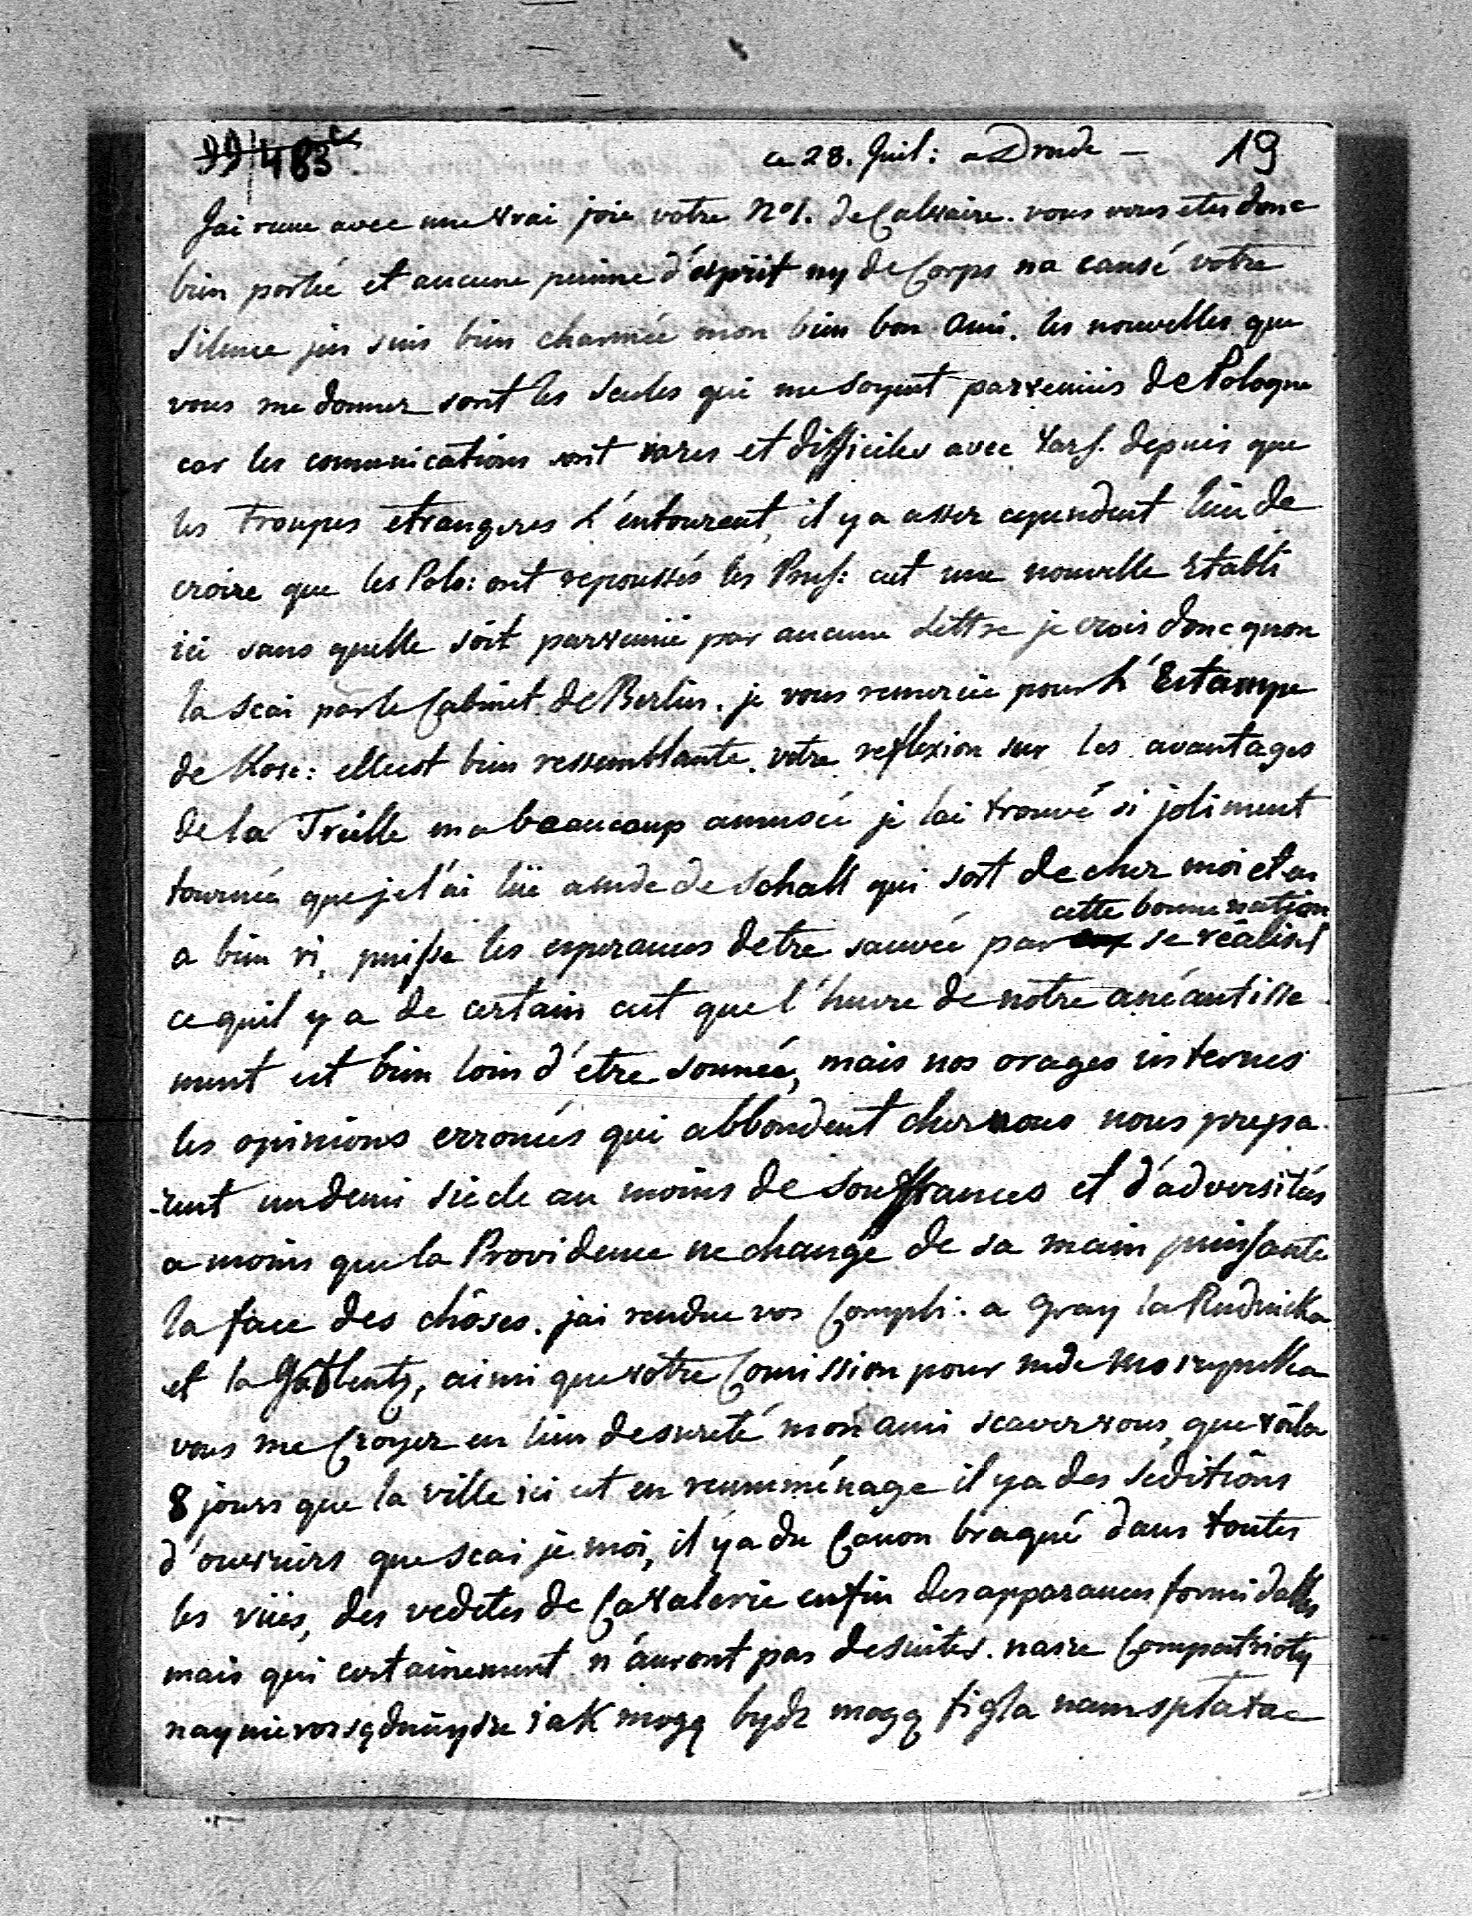 99/483c
ce 28. Juil: a Drade — 19
Jai recue avec une vrai joie votre No 1. de Calvaire. vous vous etes donc
bien portée et aucune peinne d'ésprit ny de Corps na causé votre
Silence jen suis bien charmée mon bien bon Ami. les nouvelles que
vous me donnez sont les seules qui me soyent parvenues de Pologne
car les comunications sont rares et difficiles avec Vars. depuis que
les Troupes etrangeres L'éntourent, il y a assez cependent lieu de
croire que les Polo: ont repoussés les Prus: cest une nouvelle Etabli
ici sans quelle soit parvenüe par aucune Lettre je crois donc quon
la scai par le Cabinet de Berlin. je vous remercie pour L'Estampe
de Kosc: elle est bien ressemblante. votre reflexion sur les avantages
de la Trielle ma beaucoup amusée je lai trouvé si joliment
tournée que je l'ai lüe a mde de Schall qui sort de chez moi et en
a bien ri, puisse les esperances detre sauvée par cette bonne nation se réalisel
ce quil y a de certain cest que l'heure de notre anéantisse
ment est bien loin d'étre sonnée, mais nos orages internes
les opinions erronés qui abbondent chez nous nous prepa
-rent un demi siècle au moins de Souffrances et d'adversités
a moins que la Providence ne change de sa main puissante
la face des chôses. jai rendue vos Compli. a Gray la Rudnicka
et la Gâtlentz, ainsi que votre Comission pour mde Moszynska
vous me Croyez en lieu de sureté mon ami scavez vous, que voila
8 jours que la ville ici est en remuménage il y a des Seditiôns
d'ouvriers que scai je moi, il y a du Cânon braqué dans toutes
les rües, des vedetes de Cavalerie enfin des apparances formidables
mais qui certainement n'auront pas de suites. nasze Compatrioty
naynierozsądnieysze iak mogą bydz mogą figla nam splatac